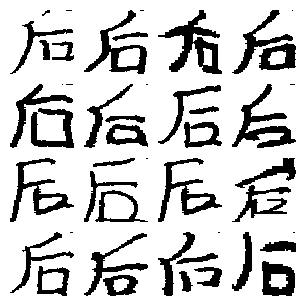 后后后后
后后后后
后后后后
后后后后